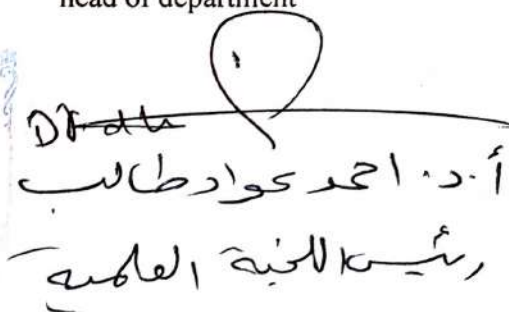 head of department
أ.د. احمد عواد طالب
رئيس اللجنة العلمية